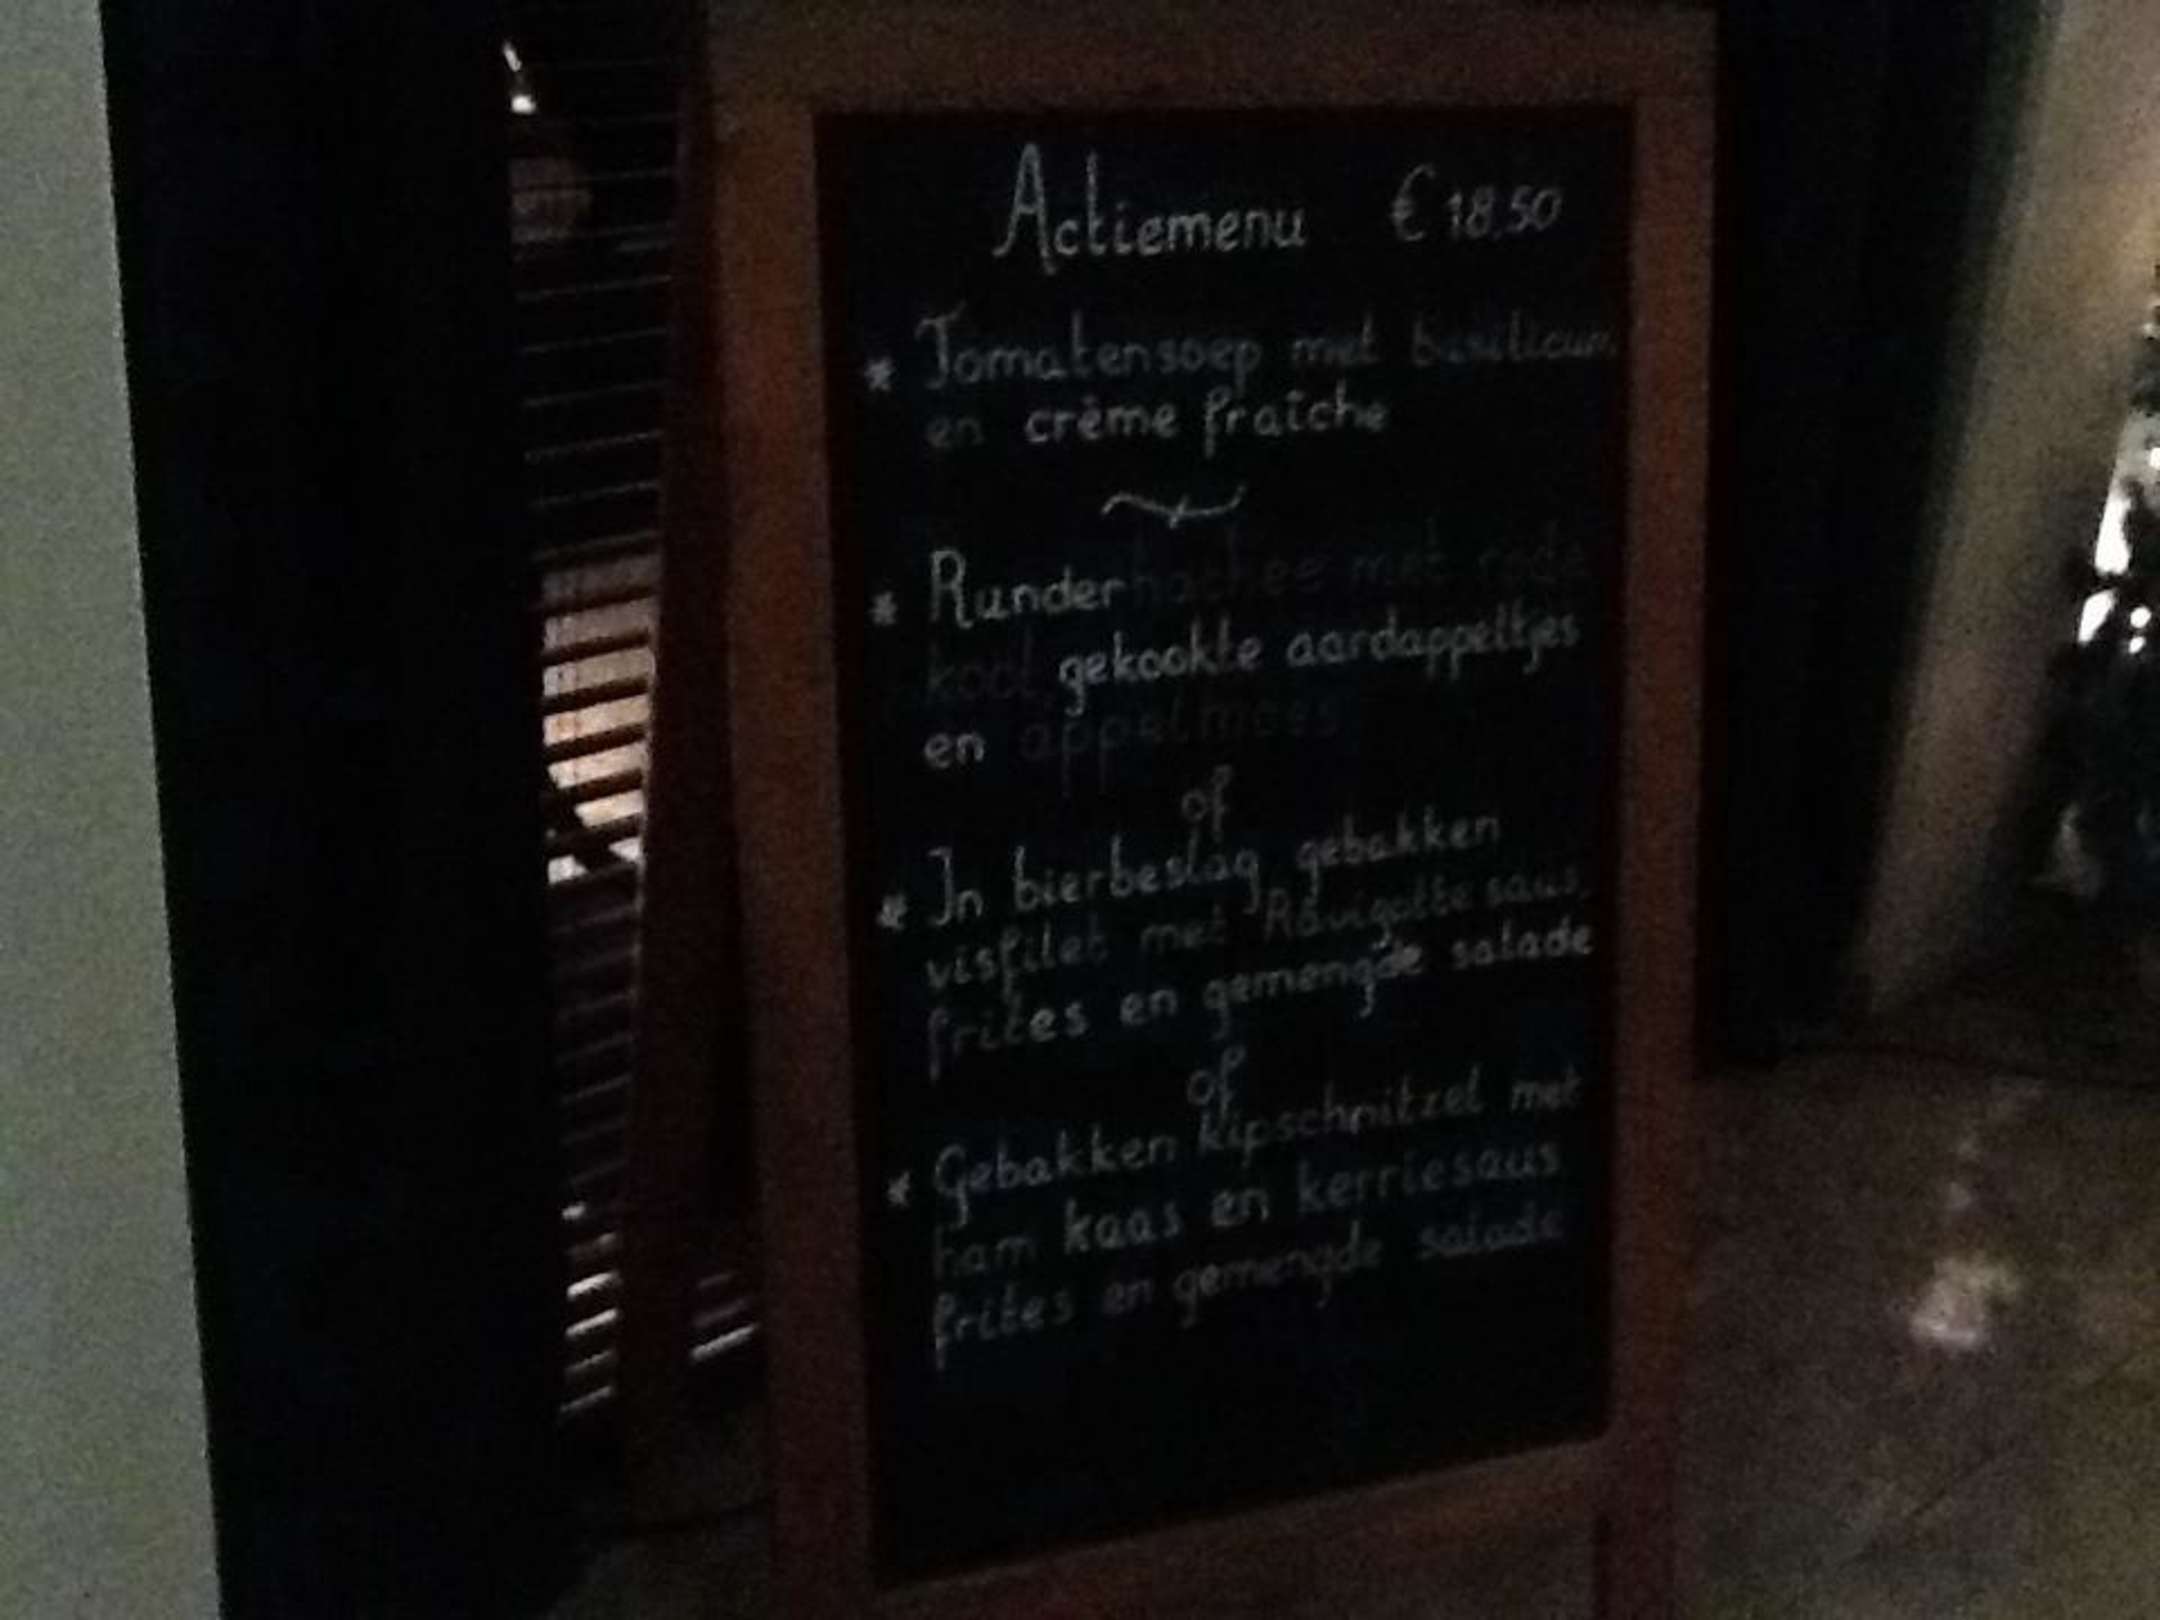 Actiemenu € 18,50
* Tomatensoep met basilicum
en crème fraîche
* Runderhachee met rode
kool gekookte aardappeltjes
en appelmoes
of
* In bierbeslag gebakken
visfilet met Ravigottesaus,
frites en gemengde salade
of
* Gebakken kipschnitzel met
ham kaas en kerriesaus
frites en gemengde salade